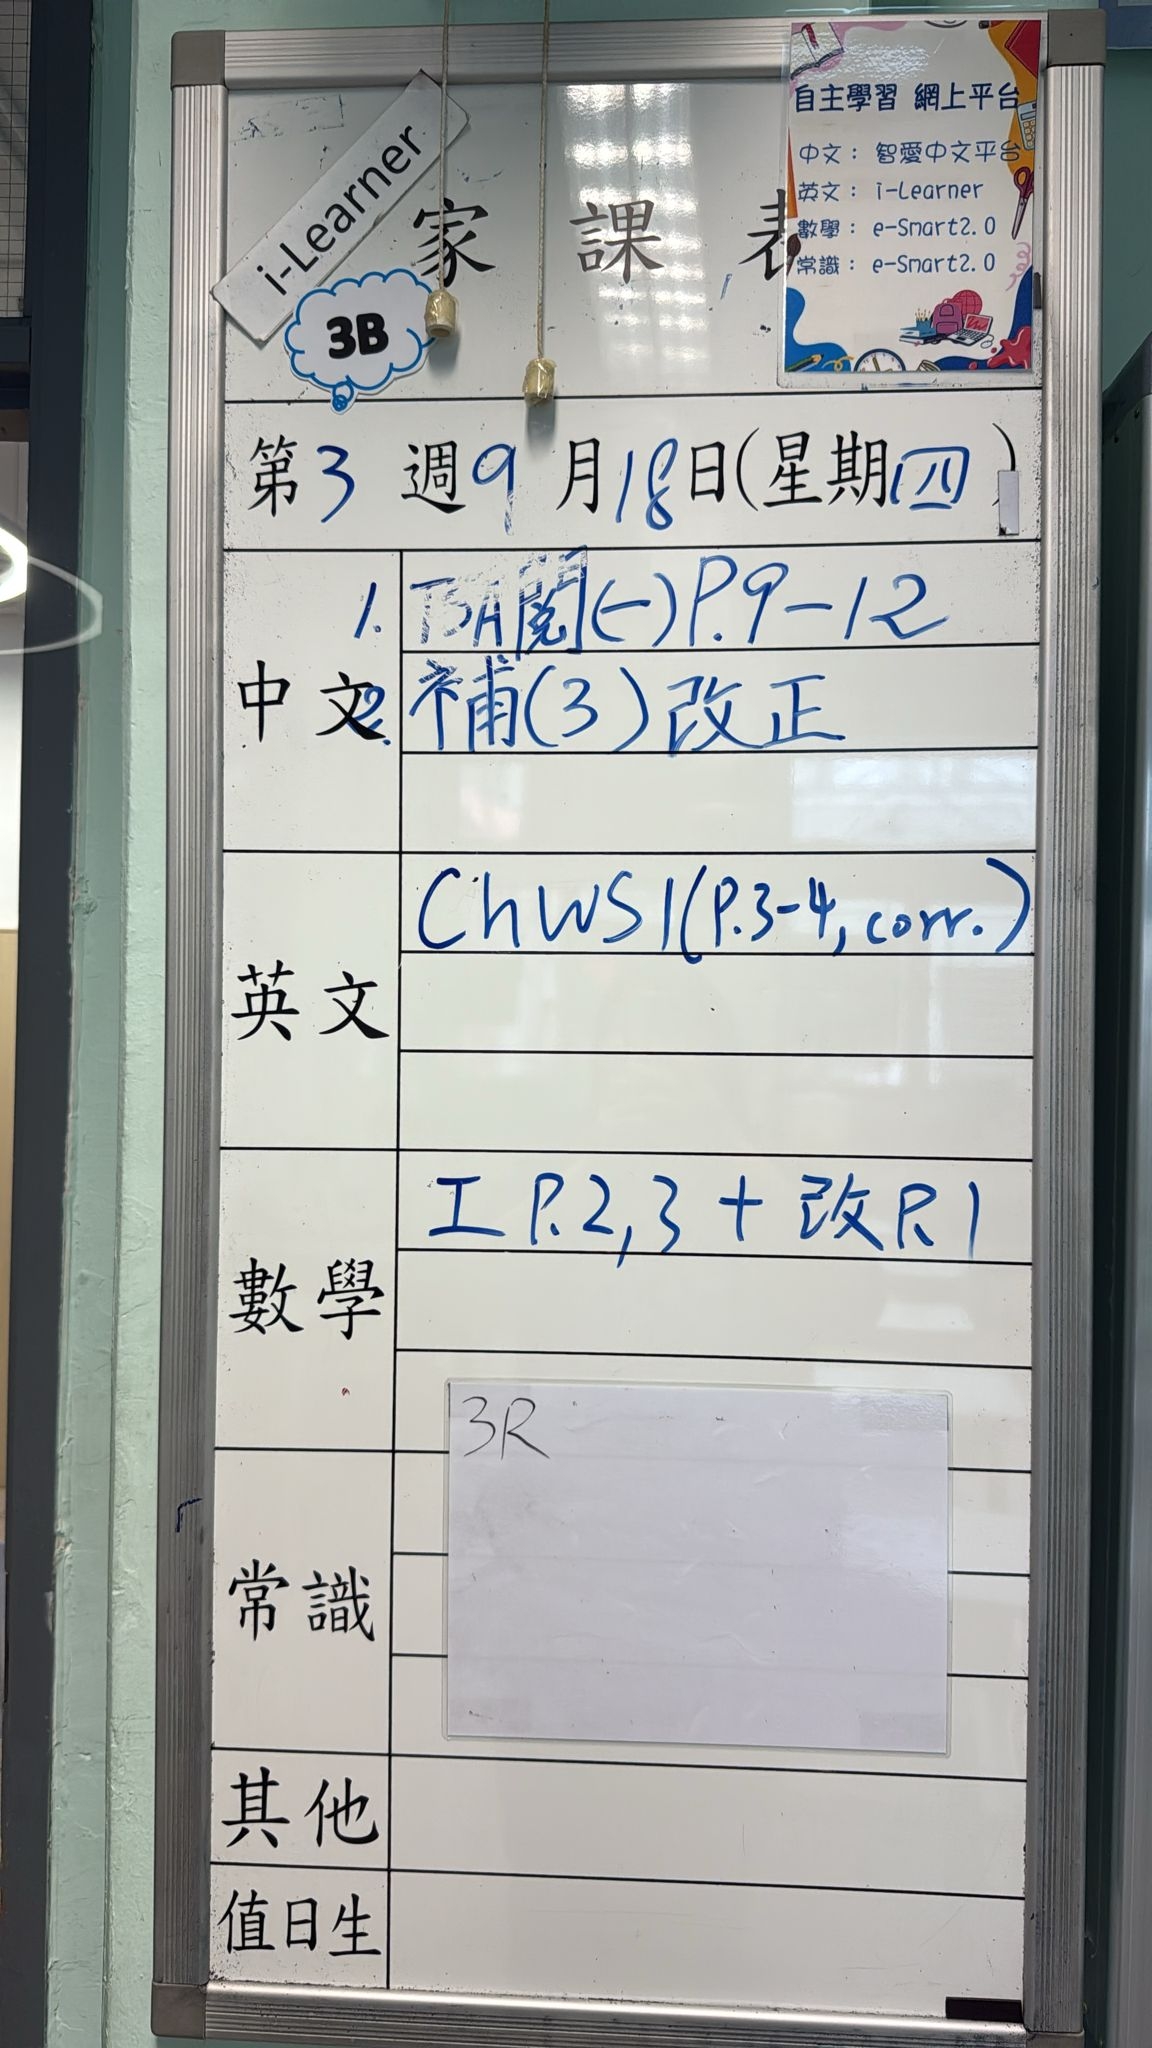 i-Learner
3B
家 課 表
自主學習 網上平台
中文： 智愛中文平台
英文： i-Learner
數學： e-Smart2.0
常識： e-Smart2.0
第 3 週 9 月 18 日(星期四)
中文
1. TSA閱(一)P.9-12
2. 補(3)改正
英文
Ch WS1(P.3-4, corr.)
數學
工 P.2,3 + 改P.1
3R
常識
其他
值日生